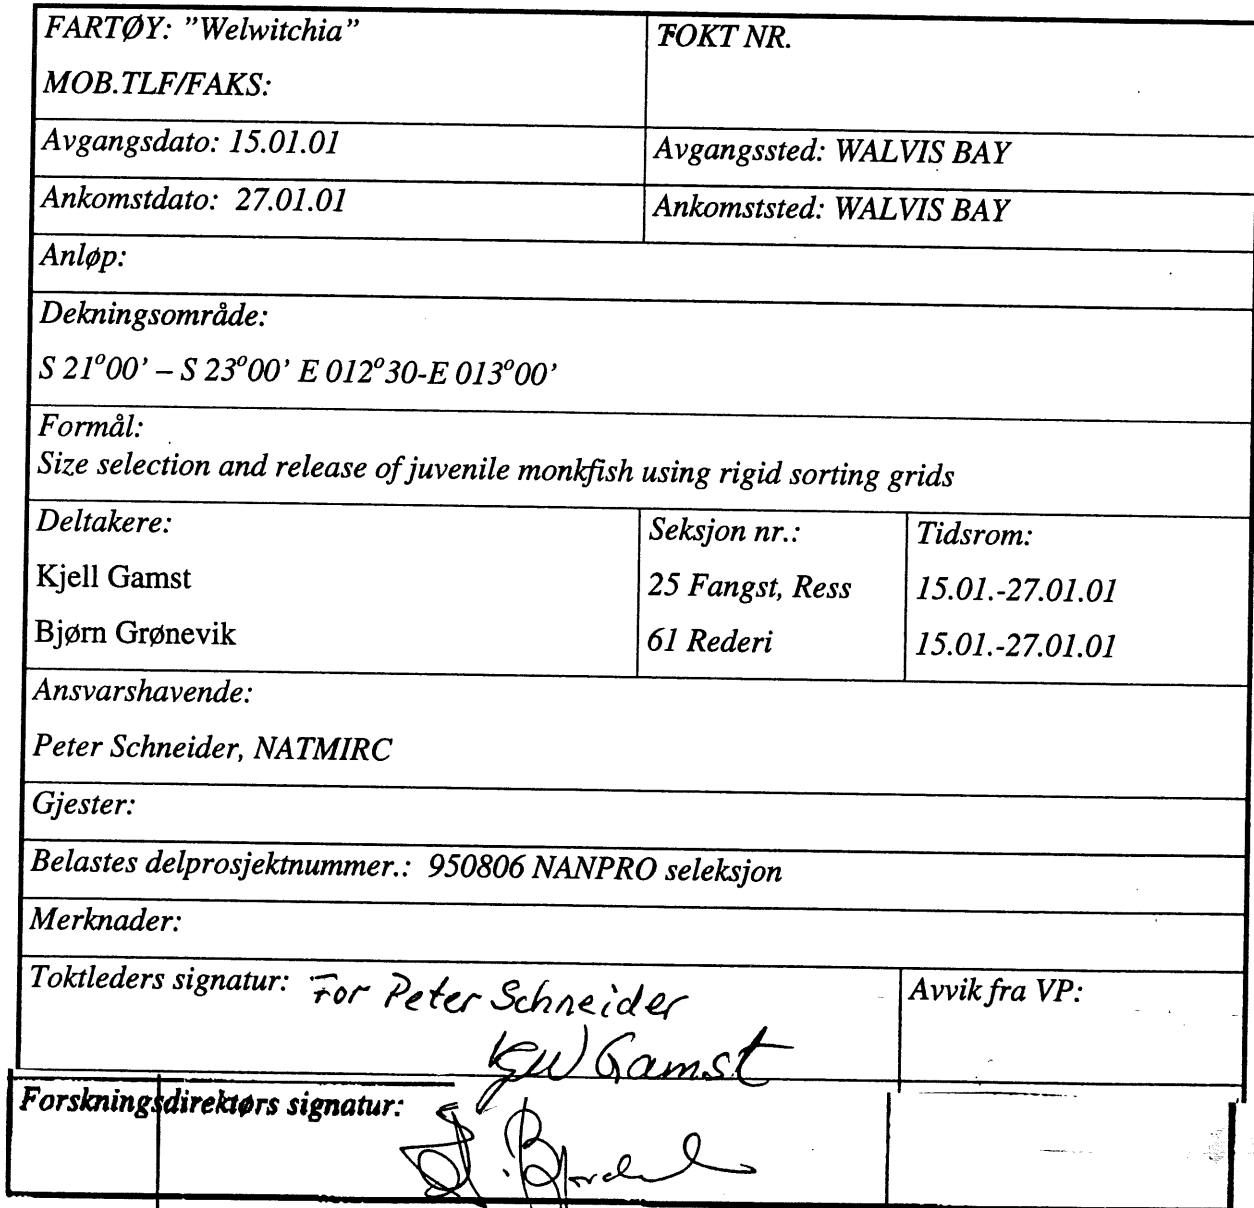 FARTØY: "Welwitchia"
FOKT NR.
MOB.TLF/FAKS:
Avgangsdato: 15.01.01
Avgangssted: WALVIS BAY
Ankomstdato: 27.01.01
Ankomststed: WALVIS BAY
Anløp:
Dekningsområde:
S 21°00' – S 23°00' E 012°30-E 013°00'
Formål:
Size selection and release of juvenile monkfish using rigid sorting grids
Deltakere:
Seksjon nr.:
Tidsrom:
Kjell Gamst
25 Fangst, Ress
15.01.-27.01.01
Bjørn Grønevik
61 Rederi
15.01.-27.01.01
Ansvarshavende:
Peter Schneider, NATMIRC
Gjester:
Belastes delprosjektnummer.: 950806 NANPRO seleksjon
Merknader:
Toktleders signatur: For Peter Schneider
Avvik fra VP:
Gamst
Forskningsdirektørs signatur: